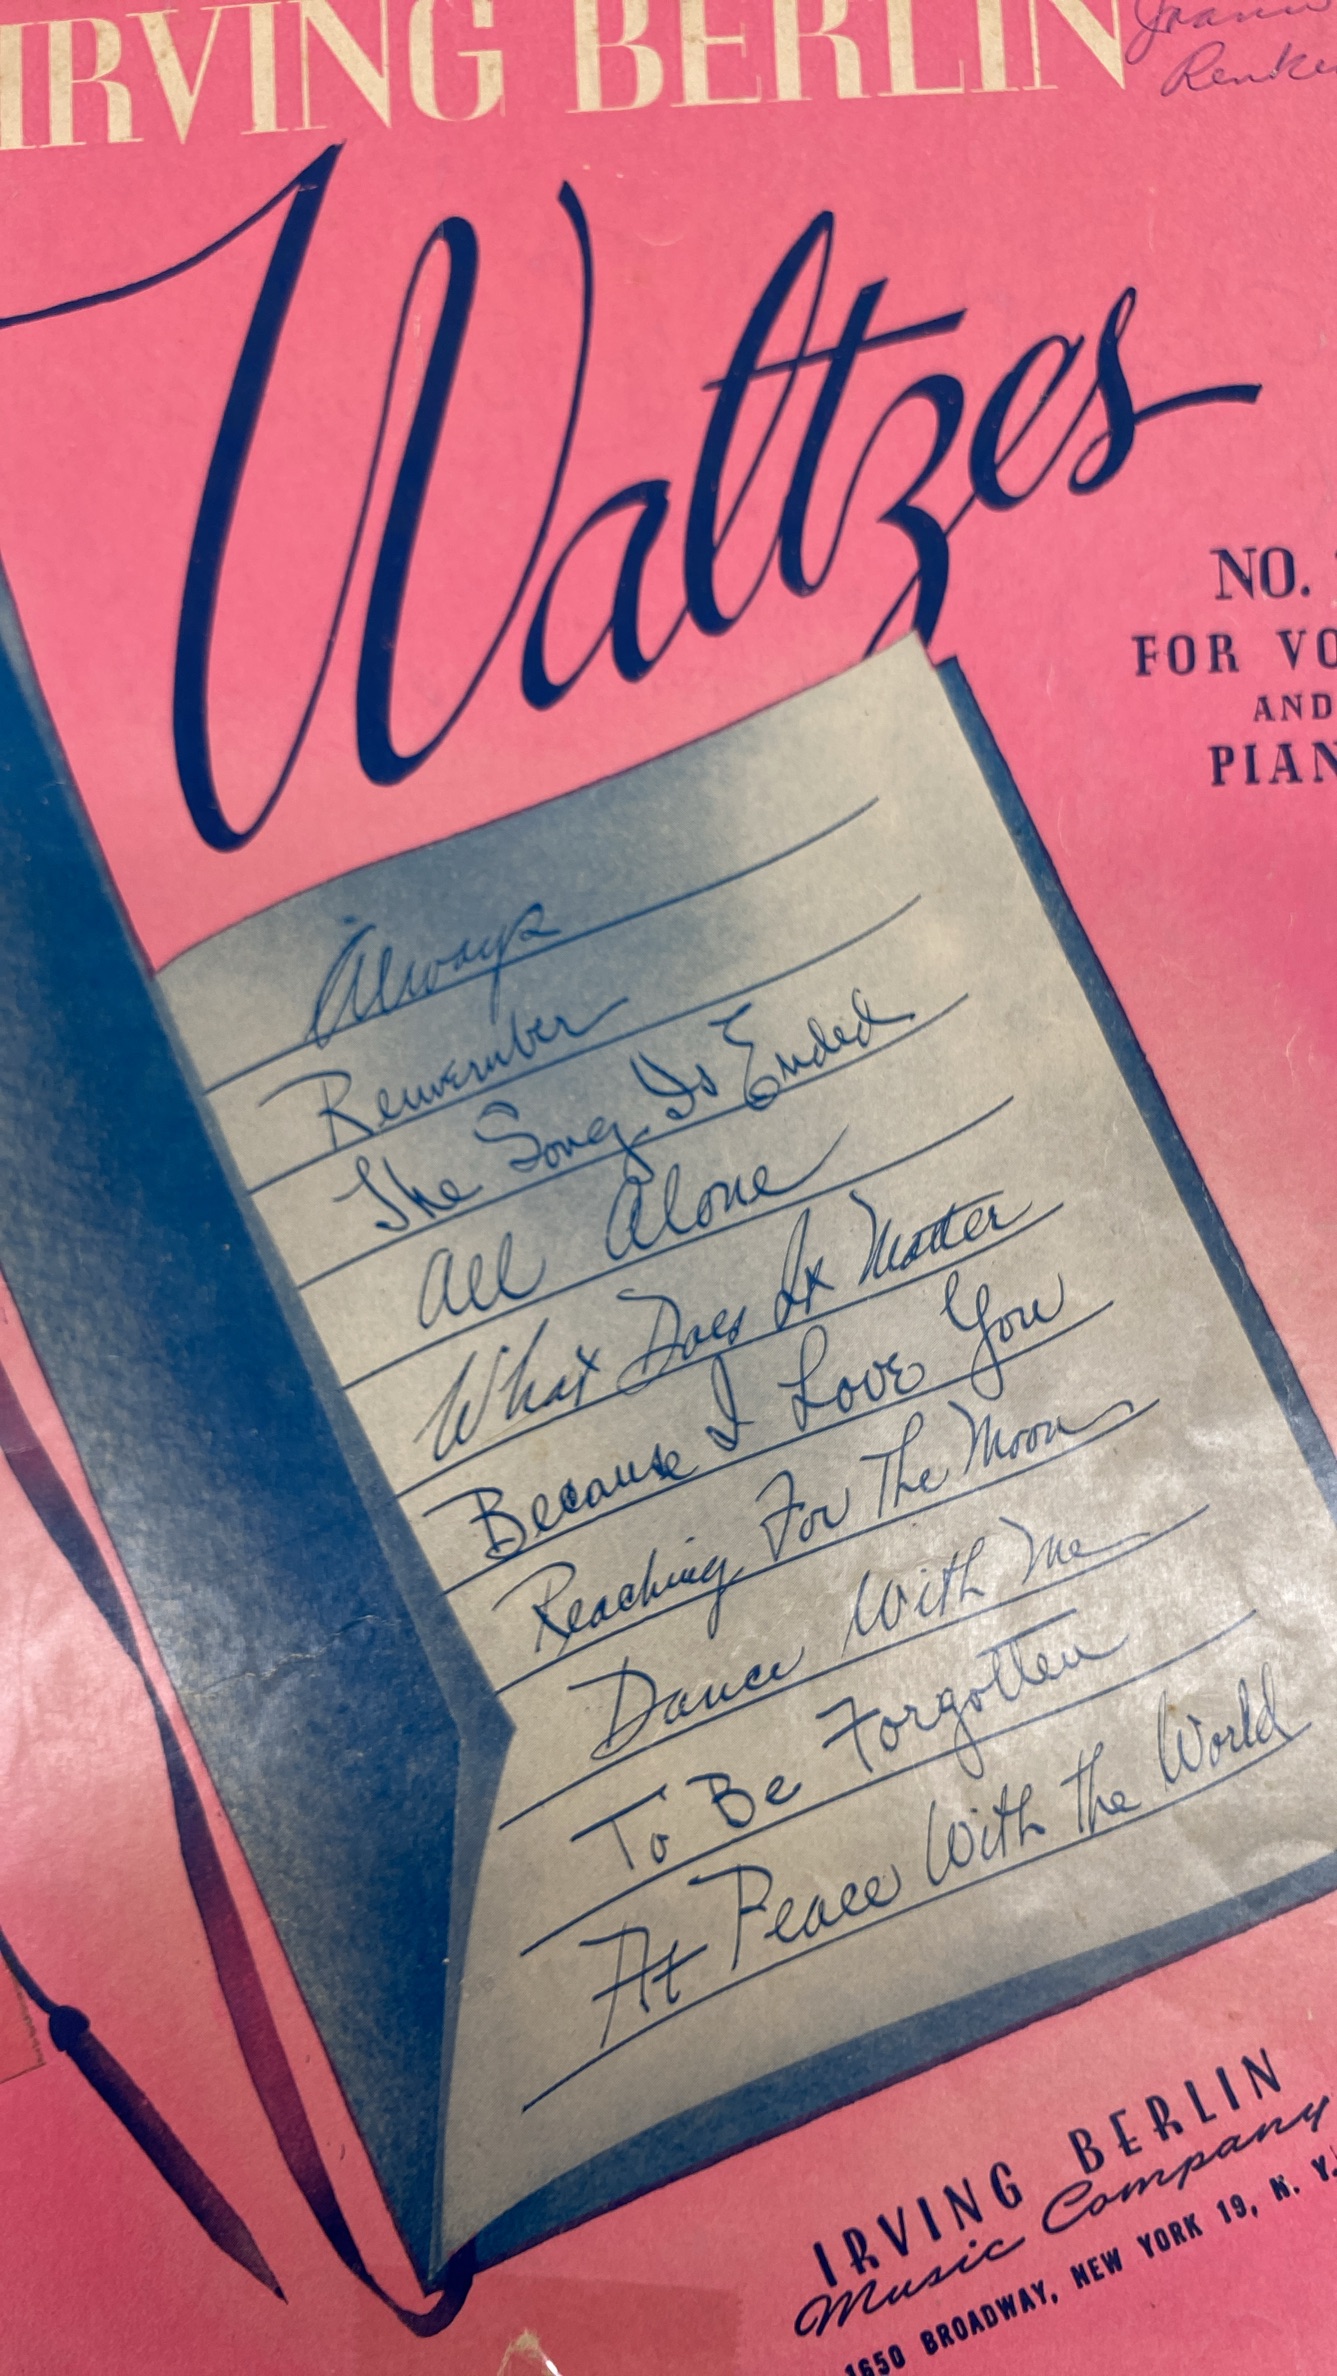 IRVING BERLIN
Renke
Waltzes
NO.
FOR VO
AND
PIAN
Always
Remember
The Song Is Ended
All Alone
What Does It Matter
Because I Love You
Reaching For The Moon
Dance With Me
To Be Forgotten
At Peace With The World
IRVING BERLIN
Music Company
1650 BROADWAY, NEW YORK 19, N. Y.